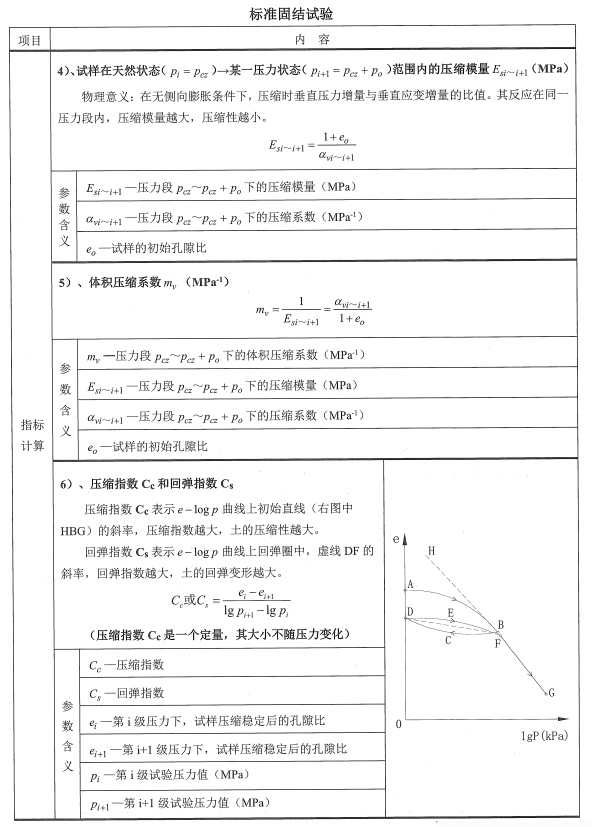 标准固结试验
项目 内 容
4）、试样在天然状态（ p_i = p_cz ）→某一压力状态（ p_i+1 = p_cz + p_o ）范围内的压缩模量 E_si～i+1（MPa）
物理意义：在无侧向膨胀条件下，压缩时垂直压力增量与垂直应变增量的比值。其反应在同一
压力段内，压缩模量越大，压缩性越小。
E_si～i+1 = (1+e_o) / α_vi～i+1
参数含义
E_si～i+1 —压力段 p_cz～p_cz + p_o 下的压缩模量（MPa）
α_vi～i+1 —压力段 p_cz～p_cz + p_o 下的压缩系数（MPa⁻¹）
e_o —试样的初始孔隙比
5）、体积压缩系数 m_v （MPa⁻¹）
m_v = 1 / E_si～i+1 = α_vi～i+1 / (1+e_o)
参数含义
m_v —压力段 p_cz～p_cz + p_o 下的体积压缩系数（MPa⁻¹）
E_si～i+1 —压力段 p_cz～p_cz + p_o 下的压缩模量（MPa）
α_vi～i+1 —压力段 p_cz～p_cz + p_o 下的压缩系数（MPa⁻¹）
e_o —试样的初始孔隙比
指标
计算
6）、压缩指数 Cc 和回弹指数 Cs
压缩指数 Cc 表示 e－log p 曲线上初始直线（右图中
HBG）的斜率，压缩指数越大，土的压缩性越大。
回弹指数 Cs 表示 e－log p 曲线上回弹圈中，虚线 DF 的
斜率，回弹指数越大，土的回弹变形越大。
C_c或C_s = (e_i－e_i+1) / (lg p_i+1－lg p_i)
（压缩指数 Cc 是一个定量，其大小不随压力变化）
参数含义
C_c —压缩指数
C_s —回弹指数
e_i —第 i 级压力下，试样压缩稳定后的孔隙比
e_i+1 —第 i+1 级压力下，试样压缩稳定后的孔隙比
p_i —第 i 级试验压力值（MPa）
p_i+1 —第 i+1 级试验压力值（MPa）
e
H
A
D
E
B
C
F
G
0
lgP(kPa)